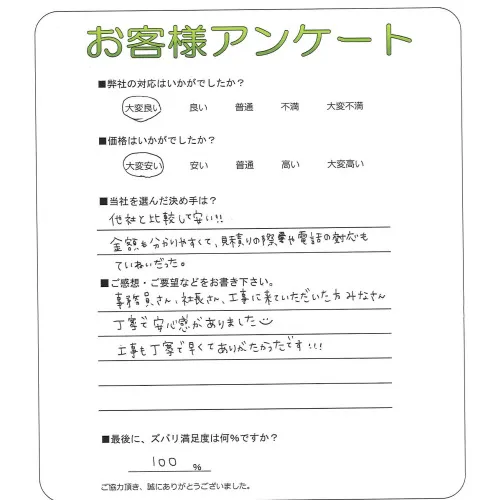 お客様アンケート
■弊社の対応はいかがでしたか?
大変良い 良い 普通 不満 大変不満
■価格はいかがでしたか?
大変安い 安い 普通 高い 大変高い
■当社を選んだ決め手は?
他社と比較して安い!!
金額も分かりやすくて、見積りの際や電話の対応も
ていねいだった。
■ご感想・ご要望などをお書き下さい。
事務員さん、社長さん、工事に来ていただいた方みなさん
丁寧で安心感がありました
工事も丁寧で早くてありがたかったです!!!
■最後に、ズバリ満足度は何%ですか?
100 %
ご協力頂き、誠にありがとうございました。